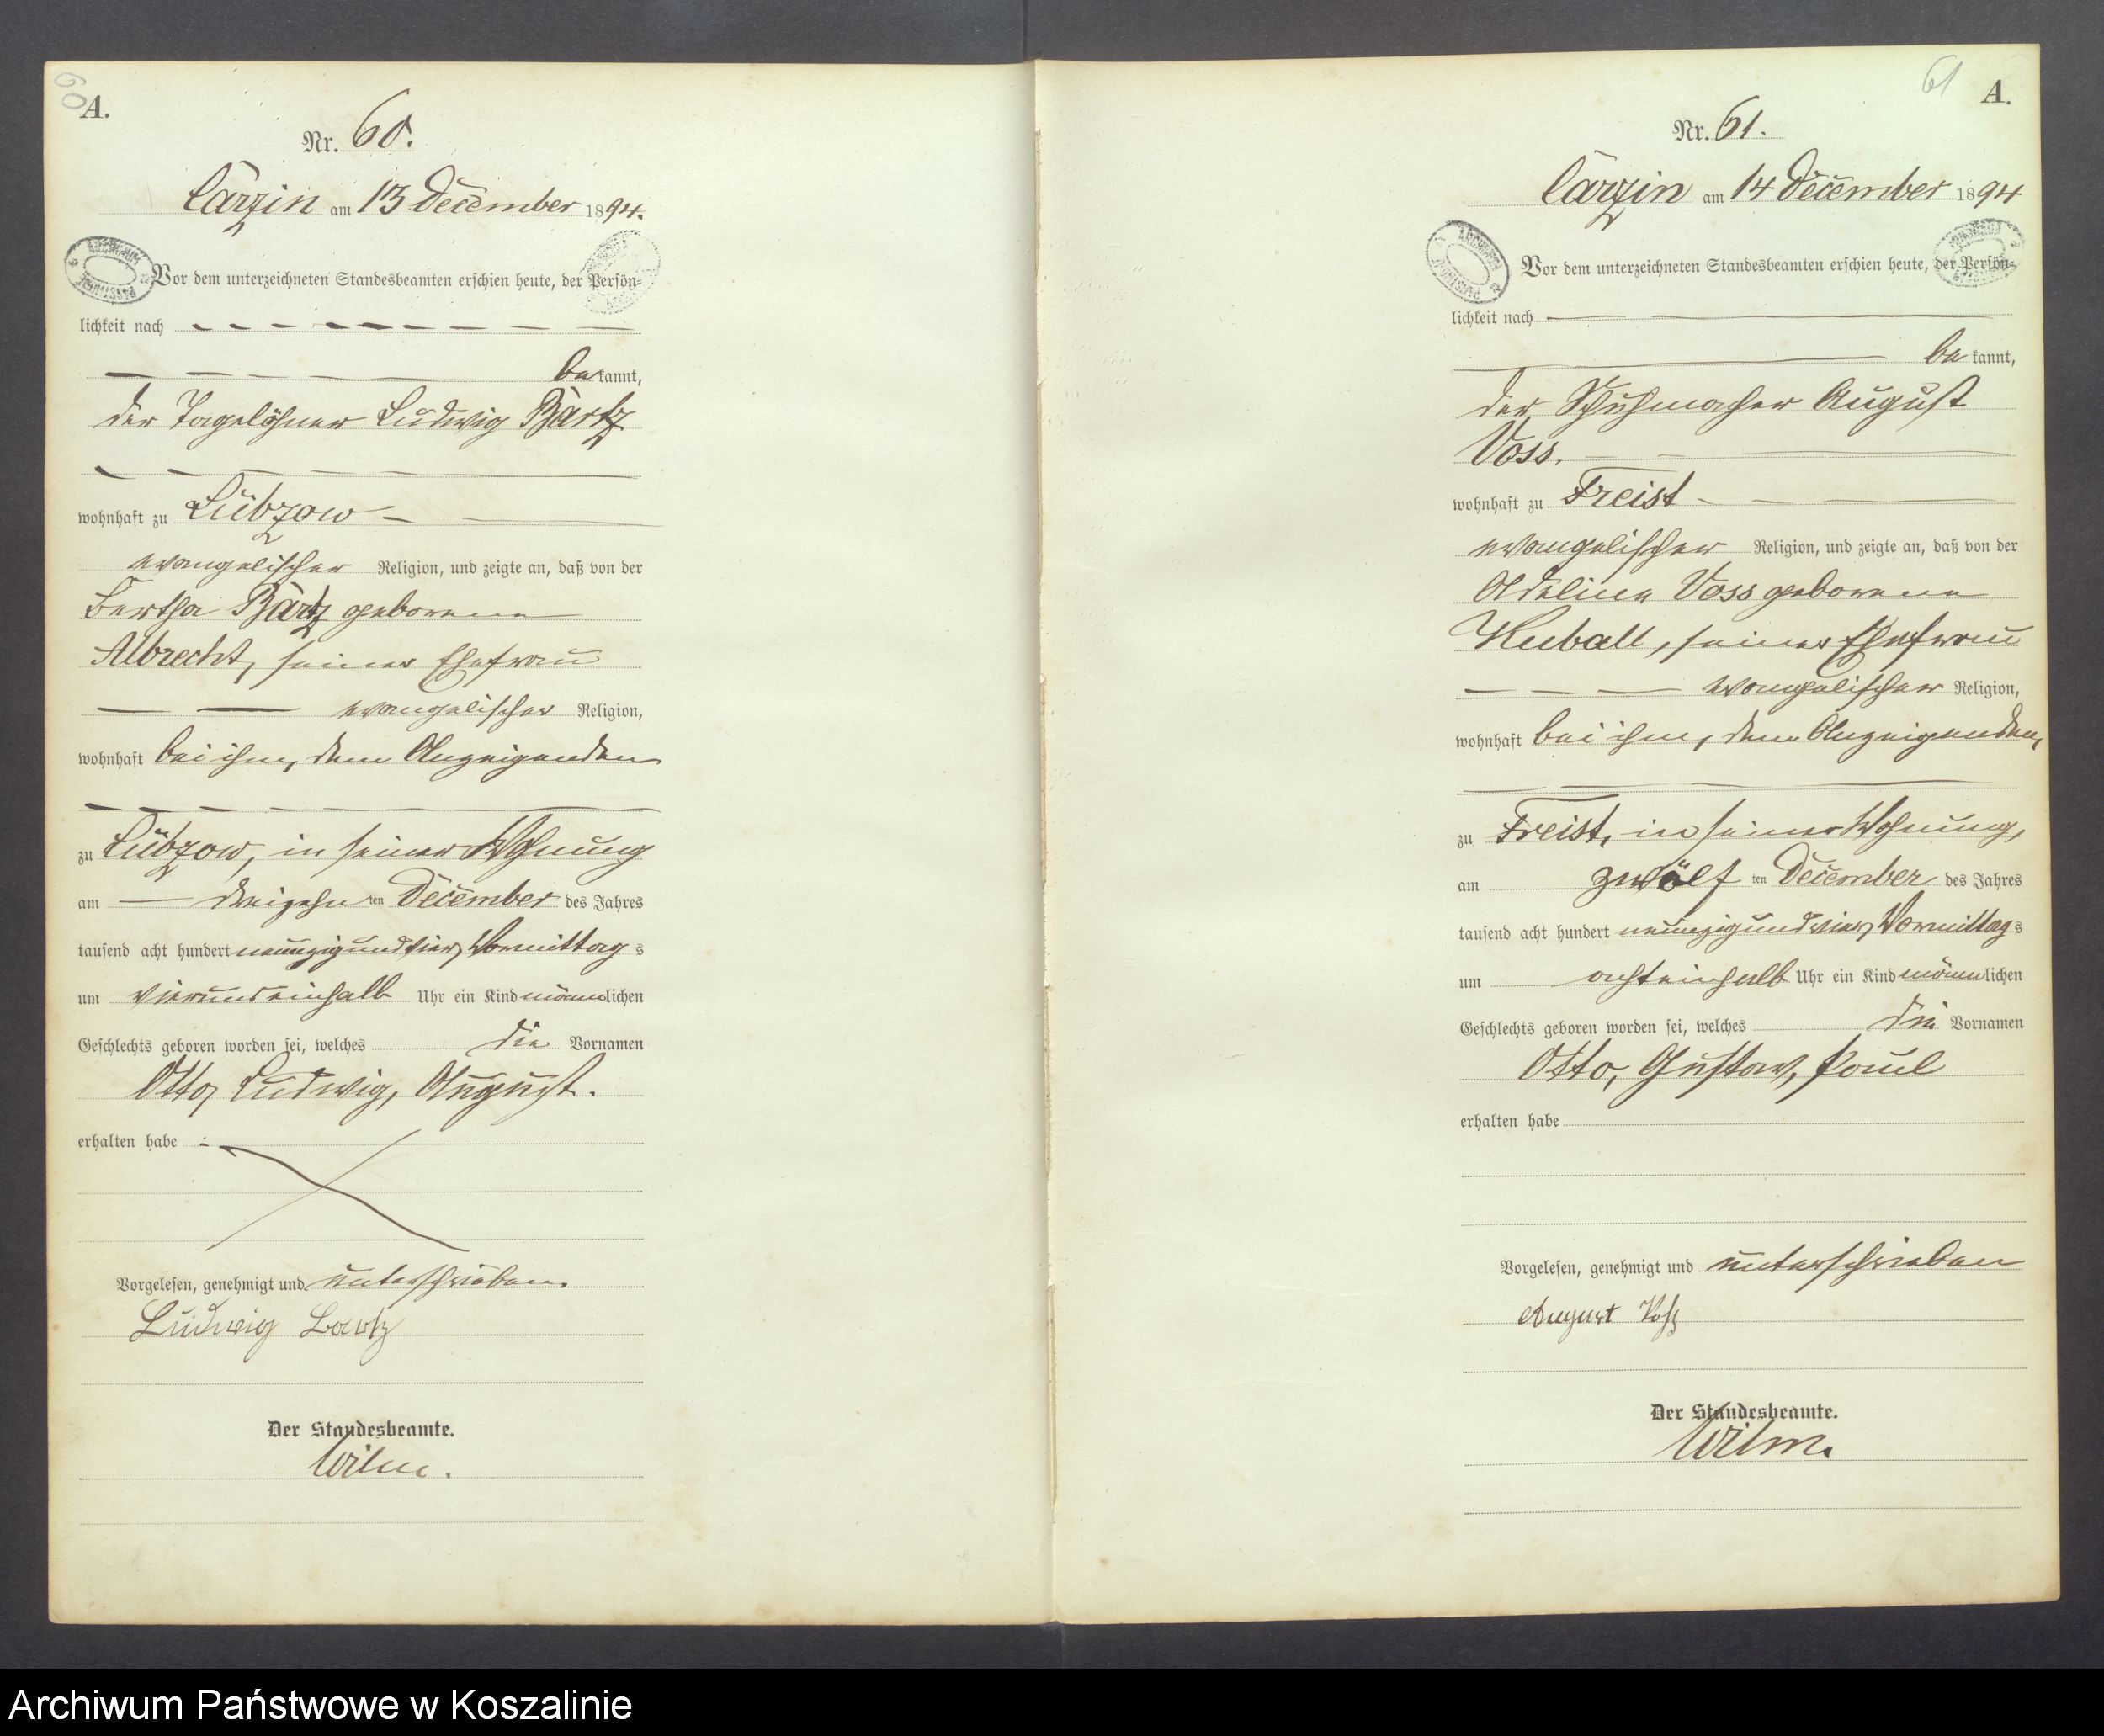 60
A.
Nr. 60.
Carzin am 13 December 1894.
ARCHIWUM
Vor dem unterzeichneten Standesbeamten erschien heute, der Persön-
lichkeit nach
bekannt,
der Tagelöhner Ludwig Bartz
wohnhaft zu Lübzow
evangelischer Religion, und zeigte an, daß von der
Bertha Bartz geborene
Albrecht, seiner Ehefrau
evangelischer Religion,
wohnhaft bei ihm, dem Anzeigenden
zu Lübzow, in seiner Wohnung
am dreizehnten December des Jahres
tausend acht hundert neunzig und vier, Vormittags
um vierundeinhalb Uhr ein Kind männlichen
Geschlechts geboren worden sei, welches die Vornamen
Otto, Ludwig, August.
erhalten habe
Vorgelesen, genehmigt und unterschrieben.
Ludwig Bartz
Der Standesbeamte.
Wilm.
61
A.
Nr. 61.
Carzin am 14 December 1894
ARCHIWUM
Vor dem unterzeichneten Standesbeamten erschien heute, der Persön-
lichkeit nach
bekannt,
der Schuhmacher August
Voss.
wohnhaft zu Freist
evangelischer Religion, und zeigte an, daß von der
Adeline Voss geborene
Kuball, seiner Ehefrau
evangelischer Religion,
wohnhaft bei ihm, dem Anzeigenden,
zu Freist, in seiner Wohnung,
am zwölften December des Jahres
tausend acht hundert neunzig und vier, Vormittags
um achteinhalb Uhr ein Kind männlichen
Geschlechts geboren worden sei, welches die Vornamen
Otto, Gustav, Paul
erhalten habe
Vorgelesen, genehmigt und unterschrieben
August Voß
Der Standesbeamte.
Wilm.
Archiwum Państwowe w Koszalinie